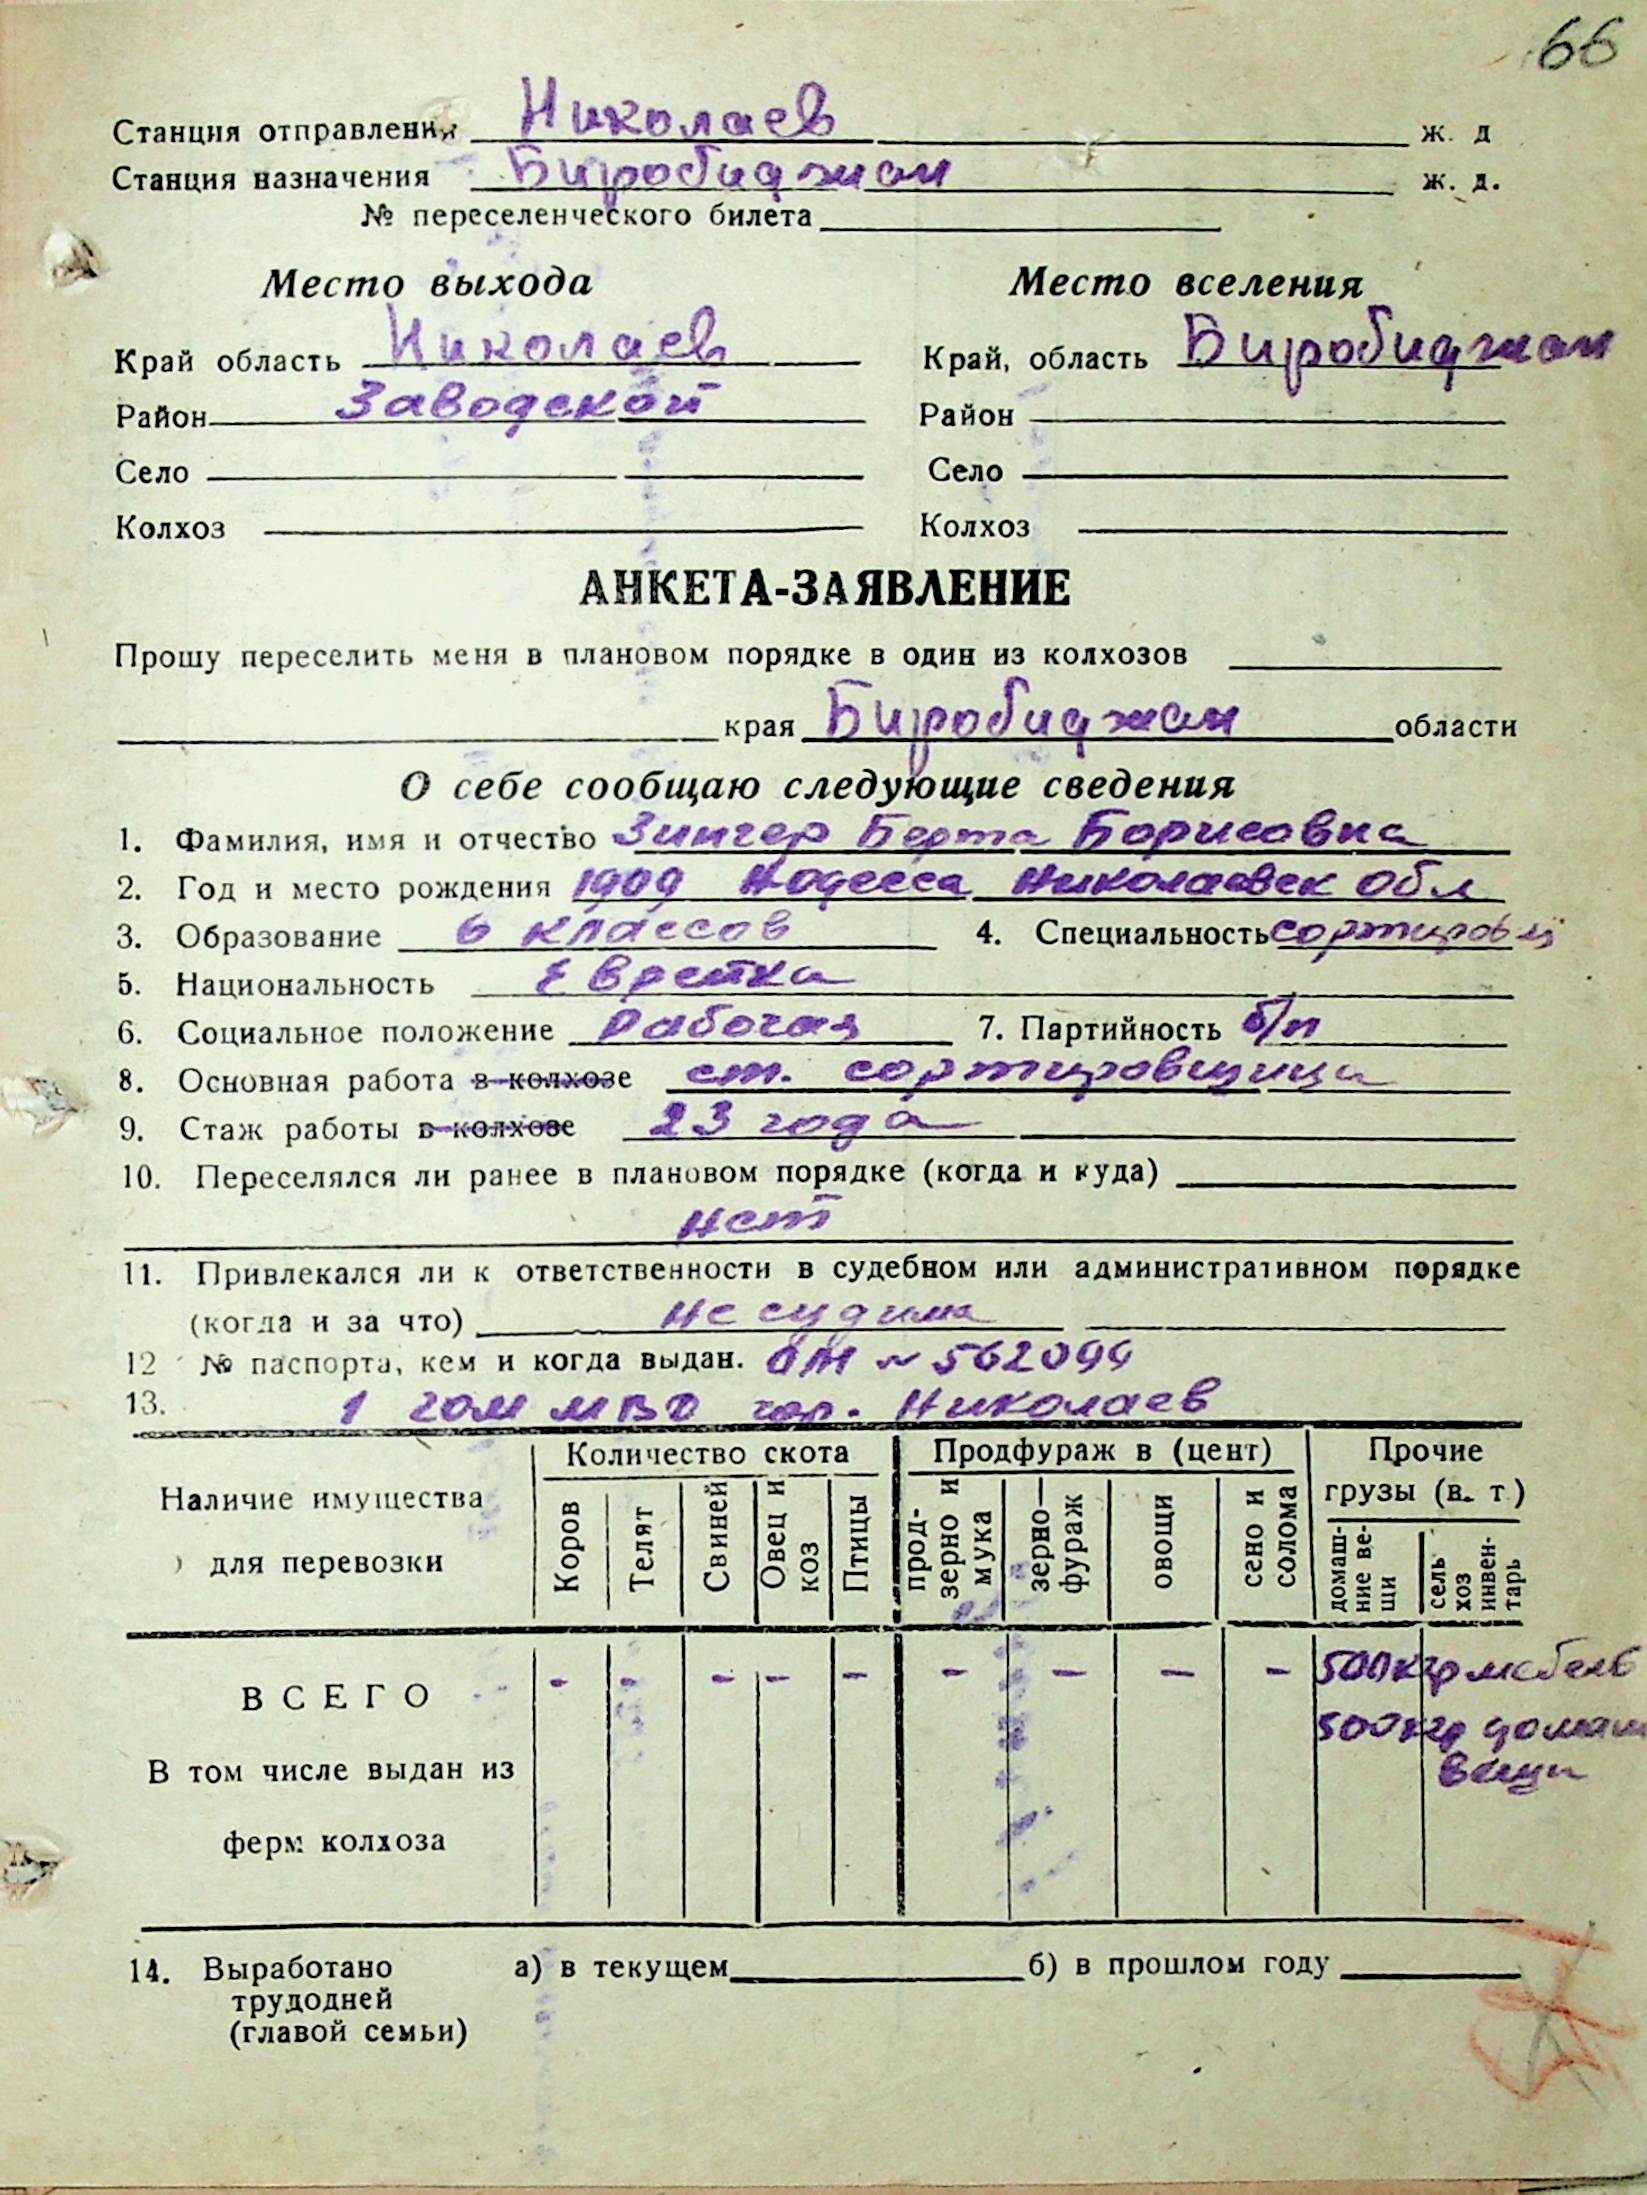 66
Станция отправления Николаев ж. д
Станция назначения Биробиджан ж. д.
№ переселенческого билета
Место выхода Место вселения
Край область Николаев Край, область Биробиджан
Район Заводской Район
Село Село
Колхоз Колхоз
АНКЕТА-ЗАЯВЛЕНИЕ
Прошу переселить меня в плановом порядке в один из колхозов
края Биробиджан области
О себе сообщаю следующие сведения
1. Фамилия, имя и отчество Зингер Берта Борисовна
2. Год и место рождения 1909 Н Одесса Николаевск обл
3. Образование 6 классов 4. Специальность сортировщ
5. Национальность Еврейка
6. Социальное положение Рабочая 7. Партийность б/п
8. Основная работа в колхозе ст. сортировщица
9. Стаж работы в колхозе 23 года
10. Переселялся ли ранее в плановом порядке (когда и куда)
нет
11. Привлекался ли к ответственности в судебном или административном порядке
(когда и за что) не судима
12 № паспорта, кем и когда выдан. № 562099
13. 1 гом МВД гор. Николаев
Наличие имущества для перевозки
Количество скота
Продфураж в (цент)
Прочие грузы (в. т.)
Коров
Телят
Свиней
Овец и коз
Птицы
прод-зерно и мука
зерно-фураж
овощи
сено и солома
домаш-ние ве-щи
сель хоз инвен-тарь
ВСЕГО - - - - - - - - - 500 кгр мебель
500 кгр домаш
вещи
В том числе выдан из
ферм колхоза
14. Выработано а) в текущем б) в прошлом году
трудодней
(главой семьи)